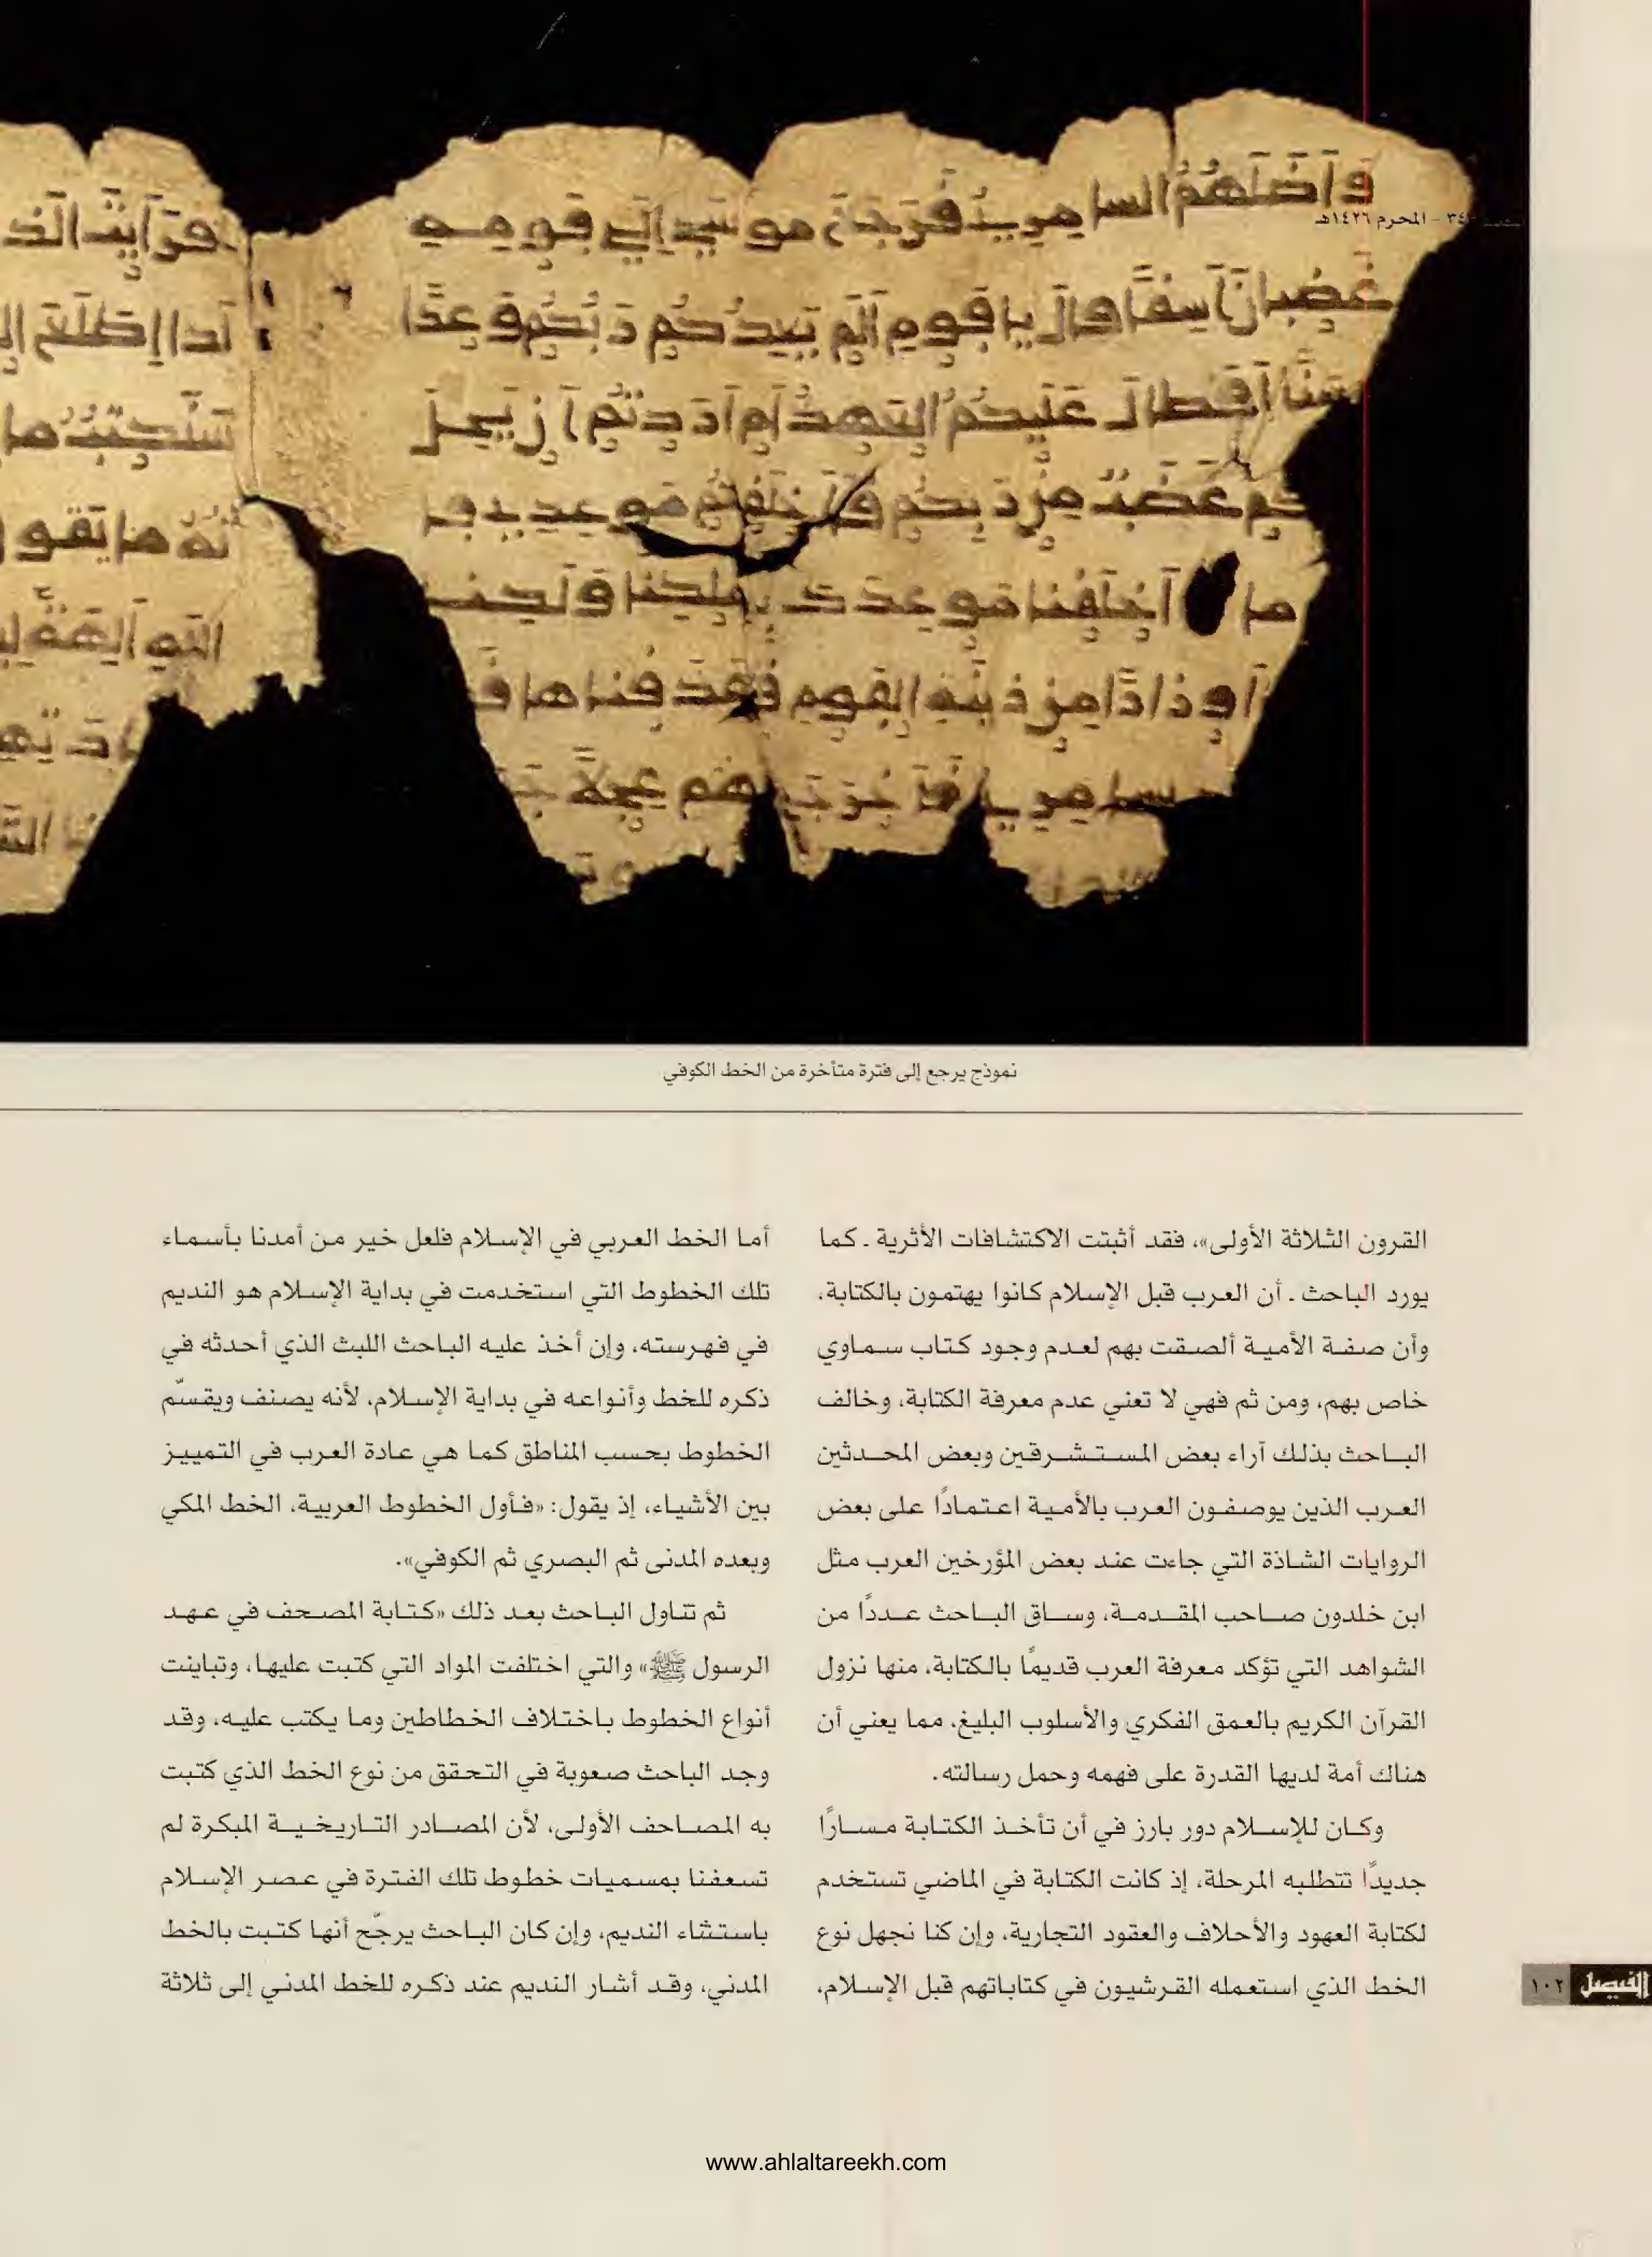 وأضلهم السامري فرجع موسى إلى قومه
غضبان أسفا قال يا قوم ألم يعدكم ربكم وعدا
حسنا أفطال عليكم العهد أم أردتم أن يحل
كم غضب من ربكم فأخلفتم موعدي قا
ما أخلفنا موعدك بملكنا ولكنا
أوزارا من زينة القوم فقذفناها فـ
السامري فأخرج لهم عجلا جـ
أفرأيت الذ
أدا اطلع ا
سنكتب ما
نرثه ما يقو
الله آلهة ليـ
٣٤ - المحرم ١٤٢٦هـ
نموذج يرجع إلى فترة متأخرة من الخط الكوفي
القرون الثلاثة الأولى»، فقد أثبتت الاكتشافات الأثرية ـ كما
يورد الباحث ـ أن العرب قبل الإسلام كانوا يهتمون بالكتابة،
وأن صفة الأمية ألصقت بهم لعدم وجود كتاب سماوي
خاص بهم، ومن ثم فهي لا تعني عدم معرفة الكتابة، وخالف
الباحث بذلك آراء بعض المستشرقين وبعض المحدثين
العرب الذين يوصفون العرب بالأمية اعتمادًا على بعض
الروايات الشاذة التي جاءت عند بعض المؤرخين العرب مثل
ابن خلدون صاحب المقدمة، وساق الباحث عددًا من
الشواهد التي تؤكد معرفة العرب قديمًا بالكتابة، منها نزول
القرآن الكريم بالعمق الفكري والأسلوب البليغ، مما يعني أن
هناك أمة لديها القدرة على فهمه وحمل رسالته.
وكان للإسلام دور بارز في أن تأخذ الكتابة مسارًا
جديدًا تتطلبه المرحلة، إذ كانت الكتابة في الماضي تستخدم
لكتابة العهود والأحلاف والعقود التجارية، وإن كنا نجهل نوع
الخط الذي استعمله القرشيون في كتاباتهم قبل الإسلام،
أما الخط العربي في الإسلام فلعل خير من أمدنا بأسماء
تلك الخطوط التي استخدمت في بداية الإسلام هو النديم
في فهرسته، وإن أخذ عليه الباحث اللبث الذي أحدثه في
ذكره للخط وأنواعه في بداية الإسلام، لأنه يصنف ويقسّم
الخطوط بحسب المناطق كما هي عادة العرب في التمييز
بين الأشياء، إذ يقول: «فأول الخطوط العربية، الخط المكي
وبعده المدنى ثم البصري ثم الكوفي».
ثم تناول الباحث بعد ذلك «كتابة المصحف في عهد
الرسول ﷺ» والتي اختلفت المواد التي كتبت عليها، وتباينت
أنواع الخطوط باختلاف الخطاطين وما يكتب عليه، وقد
وجد الباحث صعوبة في التحقق من نوع الخط الذي كتبت
به المصاحف الأولى، لأن المصادر التاريخية المبكرة لم
تسعفنا بمسميات خطوط تلك الفترة في عصر الإسلام
باستثناء النديم، وإن كان الباحث يرجّح أنها كتبت بالخط
المدني، وقد أشار النديم عند ذكره للخط المدني إلى ثلاثة
الفيصل ١٠٢
www.ahlaltareekh.com